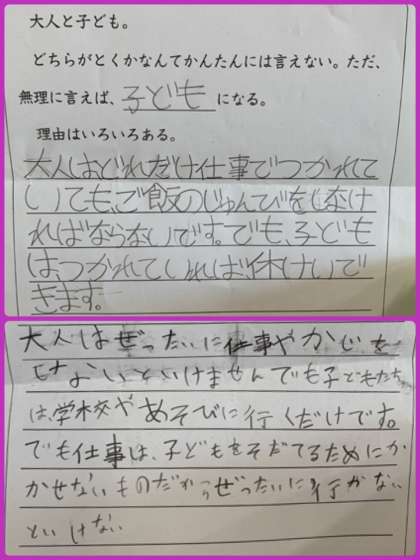 大人と子ども。
どちらがとくかなんてかんたんには言えない。ただ、
無理に言えば、子どもになる。
理由はいろいろある。
大人はどれだけ仕事でつかれて
いても、ご飯のじゅんびをしなけ
ればならないです。でも、子ども
は、つかれていれば、休けいで
きます。
大人はぜったいに仕事やかじを
しないといけませんでも子どもたち
は、学校やあそびに行くだけです。
でも仕事は、子どもをそだてるためにか
かせないものだからぜったいに行かない
といけない